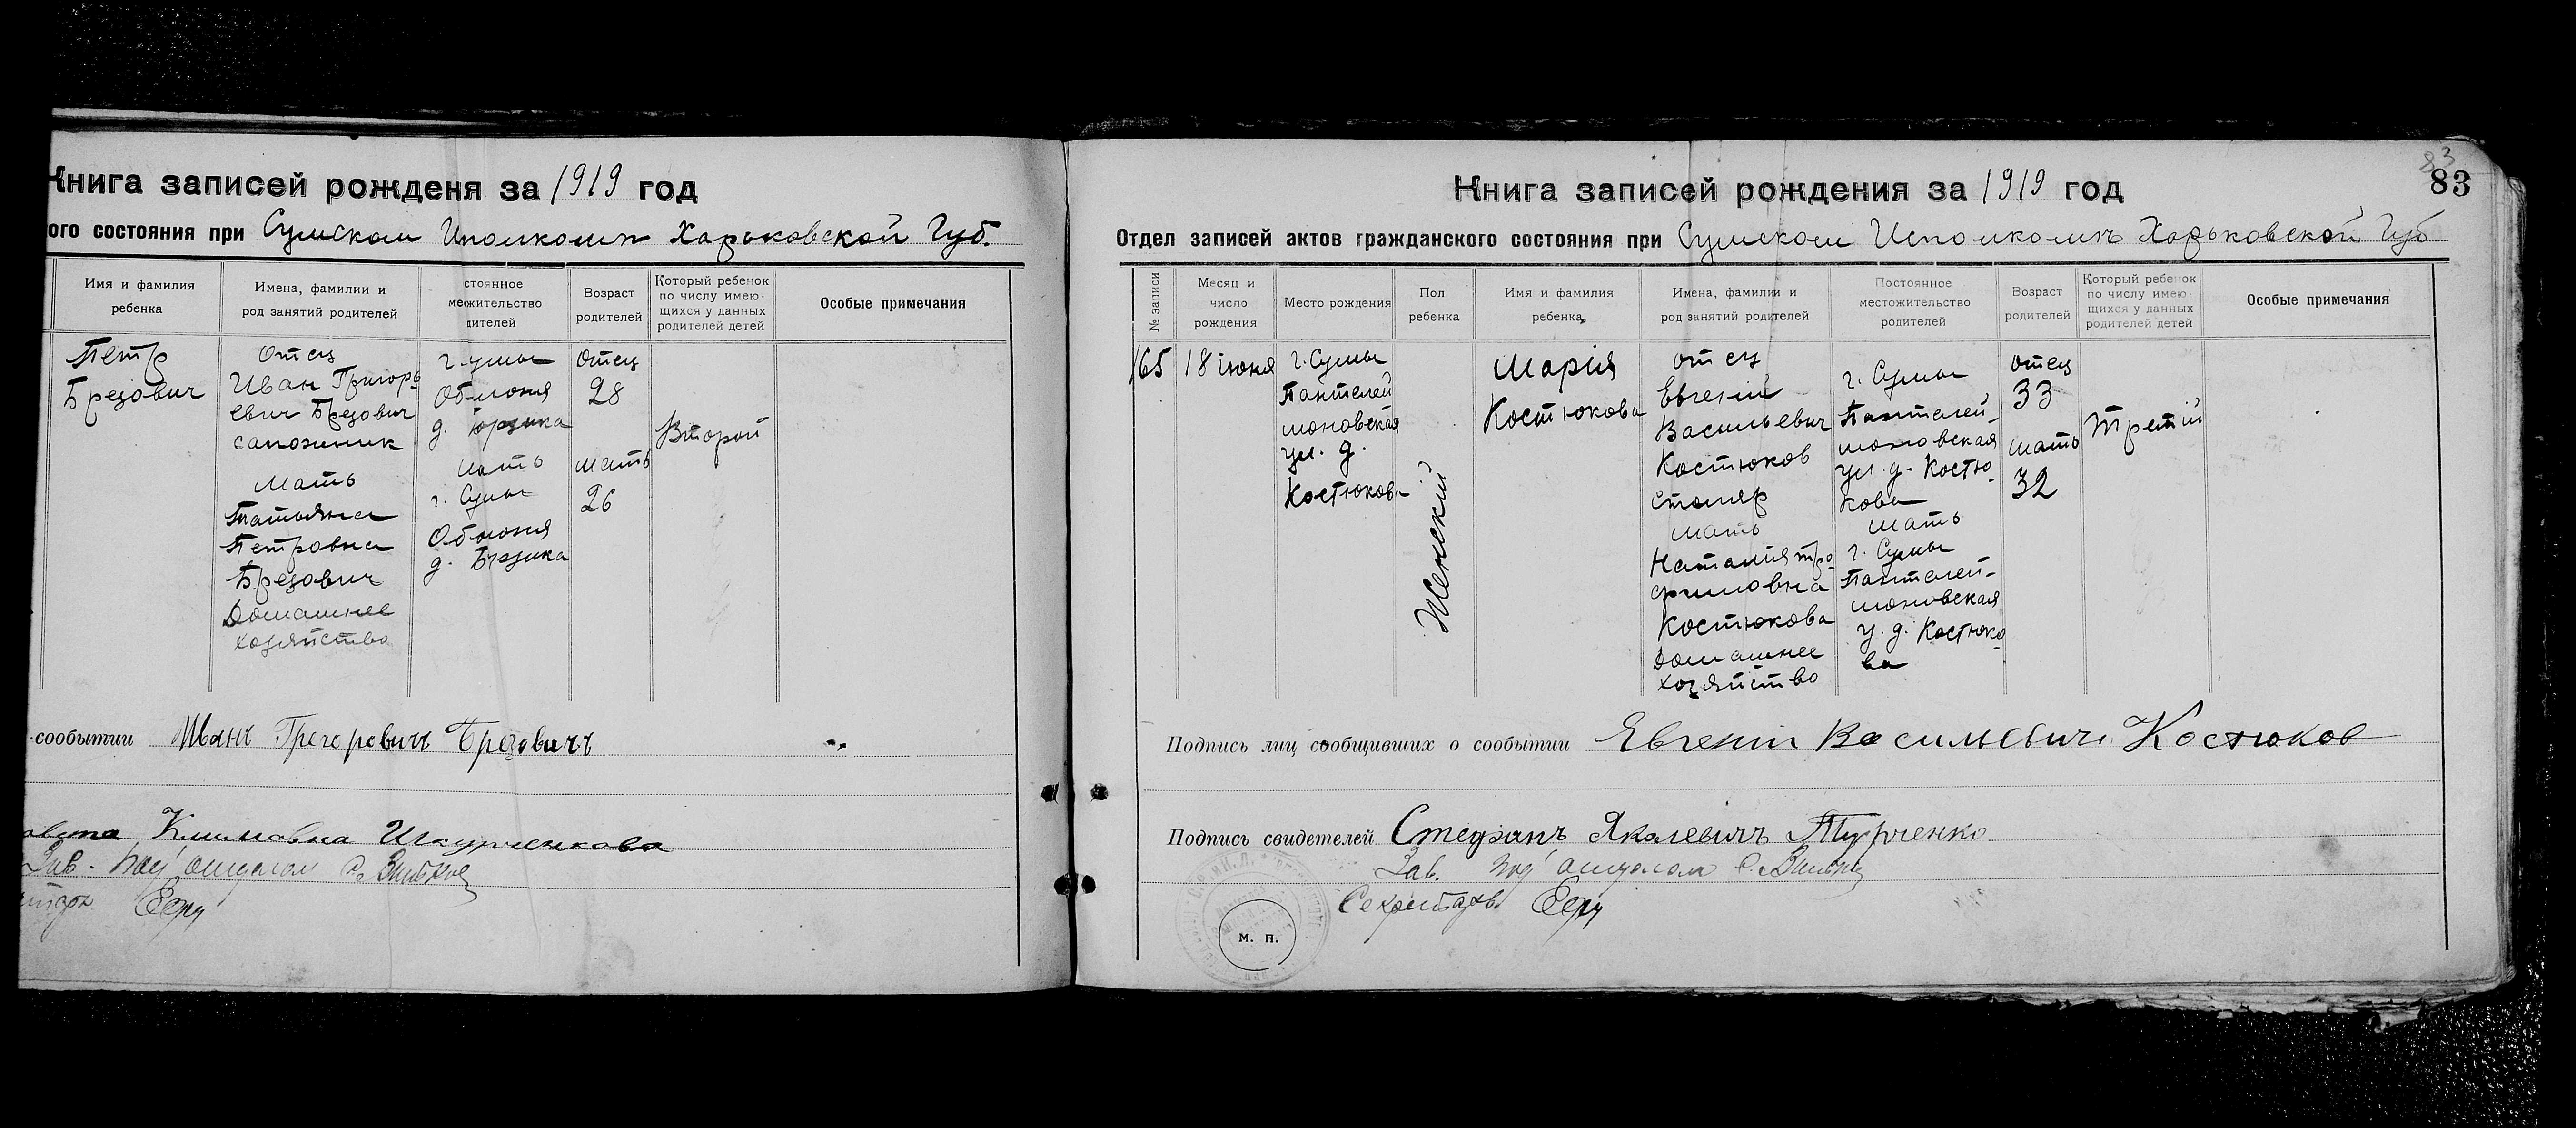 Книга записей рожденя за 1919 год
ого состояния при Сумском Исполкомъ Харьковской Губ.
Имя и фамилия
ребенка
Имена, фамилии и
род занятий родителей
стоянное
межительство
дителей
Возраст
родителей
Который ребенок
по числу имею-
щихся у данных
родителей детей
Особые примечания
Петр
Брезович
Отец
Иван Григорь
евич Брезович
сапожник
Мать
Татьяна
Петровна
Брезович
Домашнее
хозяйство
г. Сумы
Облония
д.
мать
г. Сумы
Облония
д.
отец
28
мать
26
Второй
сообытии Иванъ Грегоровичъ Брезовичъ
Климовна
Зав. под отделом
83
83
Книга записей рождения за 1919 год
Отдел записей актов гражданского состояния при Сумском Исполкомъ Харьковской Губ
№ записи
Месяц и
число
рождения
Место рождения
Пол
ребенка
Имя и фамилия
ребенка
Имена, фамилии и
род занятий родителей
Постоянное
местожительство
родителей
Возраст
родителей
Который ребенок
по числу имею-
щихся у данных
родителей детей
Особые примечания
165
18 июня
г. Сумы
Пантелей
моновская
ул. д.
Костюкова
Женский
Мария
Костюкова
отец
Евгений
Васильевич
Костюков
столяр
мать
Наталия Тро
фимовна
Костюкова
Домашнее
хозяйство
г. Сумы
Пантелей-
моновская
ул. д. Костю-
кова
мать
г. Сумы
Пантелей-
моновская
у. д. Костюко-
ва
отец
33
мать
32
Третий
Подпись лиц сообщивших о сообытии Евгений Васильевич Костюков
Подпись свидетелей Стефанъ Яколевичъ Турченко
Зав. под отделом
Секретарь
М. П.